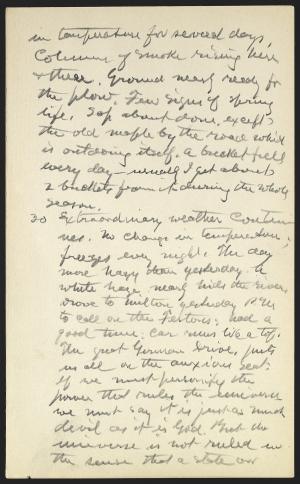 in temperature for several days,
Columns of smoke rising here
& there. Ground nearly ready for
the plow. Few signs of spring
life. Sap about done, except
the old maple by the road which
is outdoing itself. A bucket full
every day — usually I get about
2 buckets from it during the whole
season.
30 Extraordinary weather contin-
ues. No change in temperature;
freezes every night. The day
more hazy than yesterday. A
white haze nearly hides the river.
Drove to Milton yesterday P.M.
to call on the; had a
good time; car runs like a top.
The great German Drive, puts
us all on the anxious seat:
If we must personify the
power that rules the universe
we must say it is just as much
devil as it is God. But the
universe is not ruled in
the sense that a state or